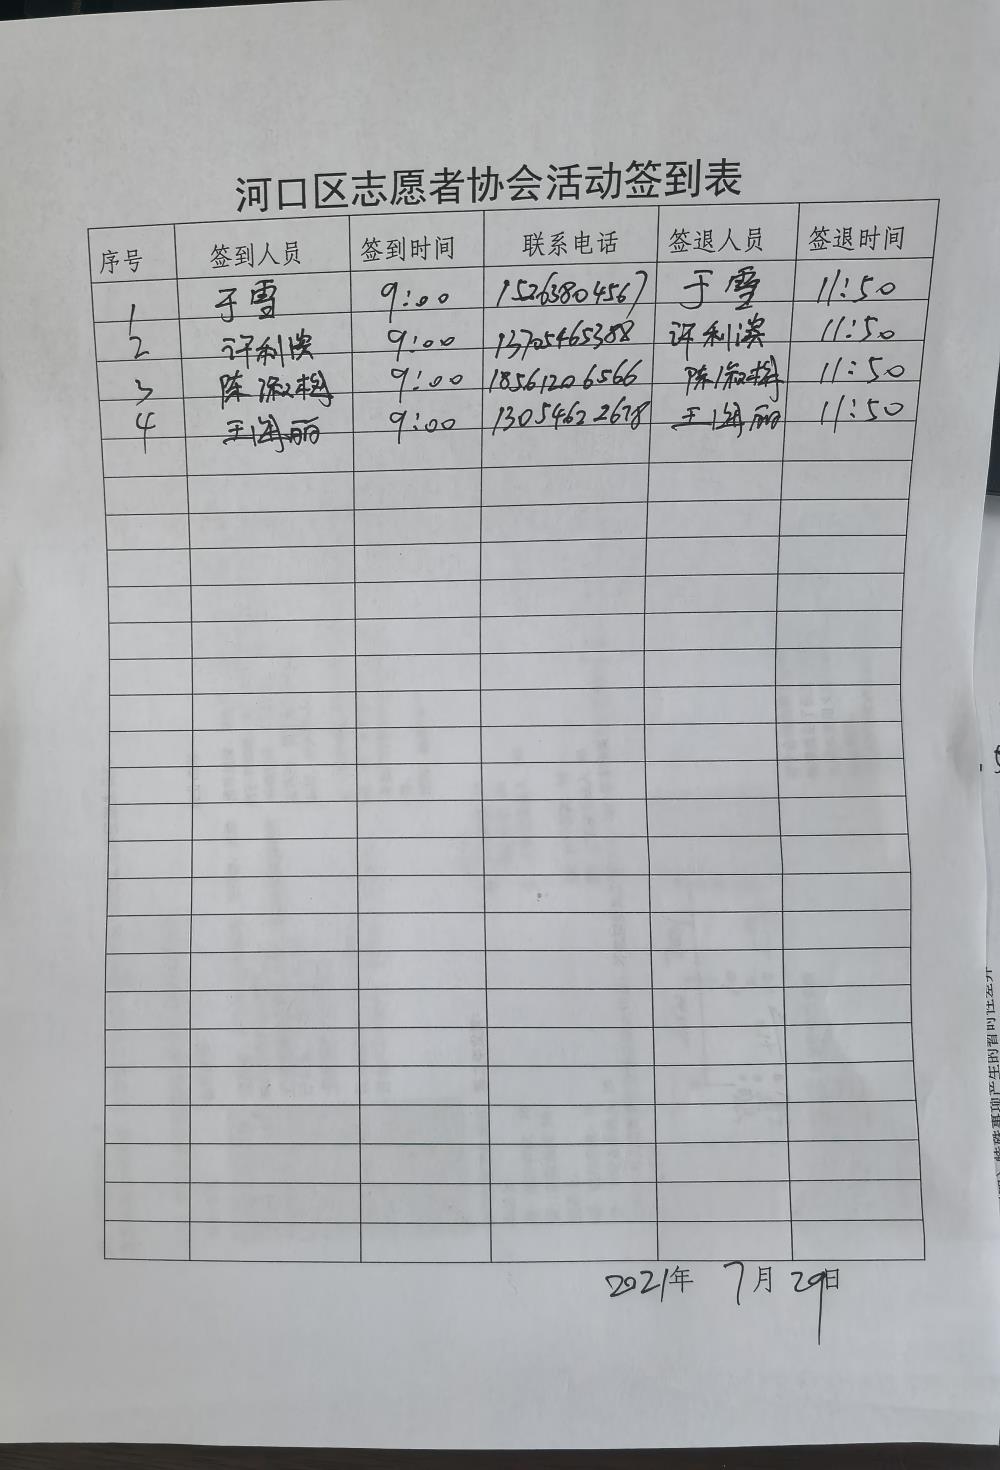 河口区志愿者协会活动签到表
序号 签到人员 签到时间 联系电话 签退人员 签退时间
1 于雪 9:00 15263804567 于雪 11:50
2 许利滨 9:00 13705465388 许利滨 11:50
3 陈淑梅 9:00 18561206566 陈淑梅 11:50
4 王海丽 9:00 13054622678 王海丽 11:50
2021年 7月29日